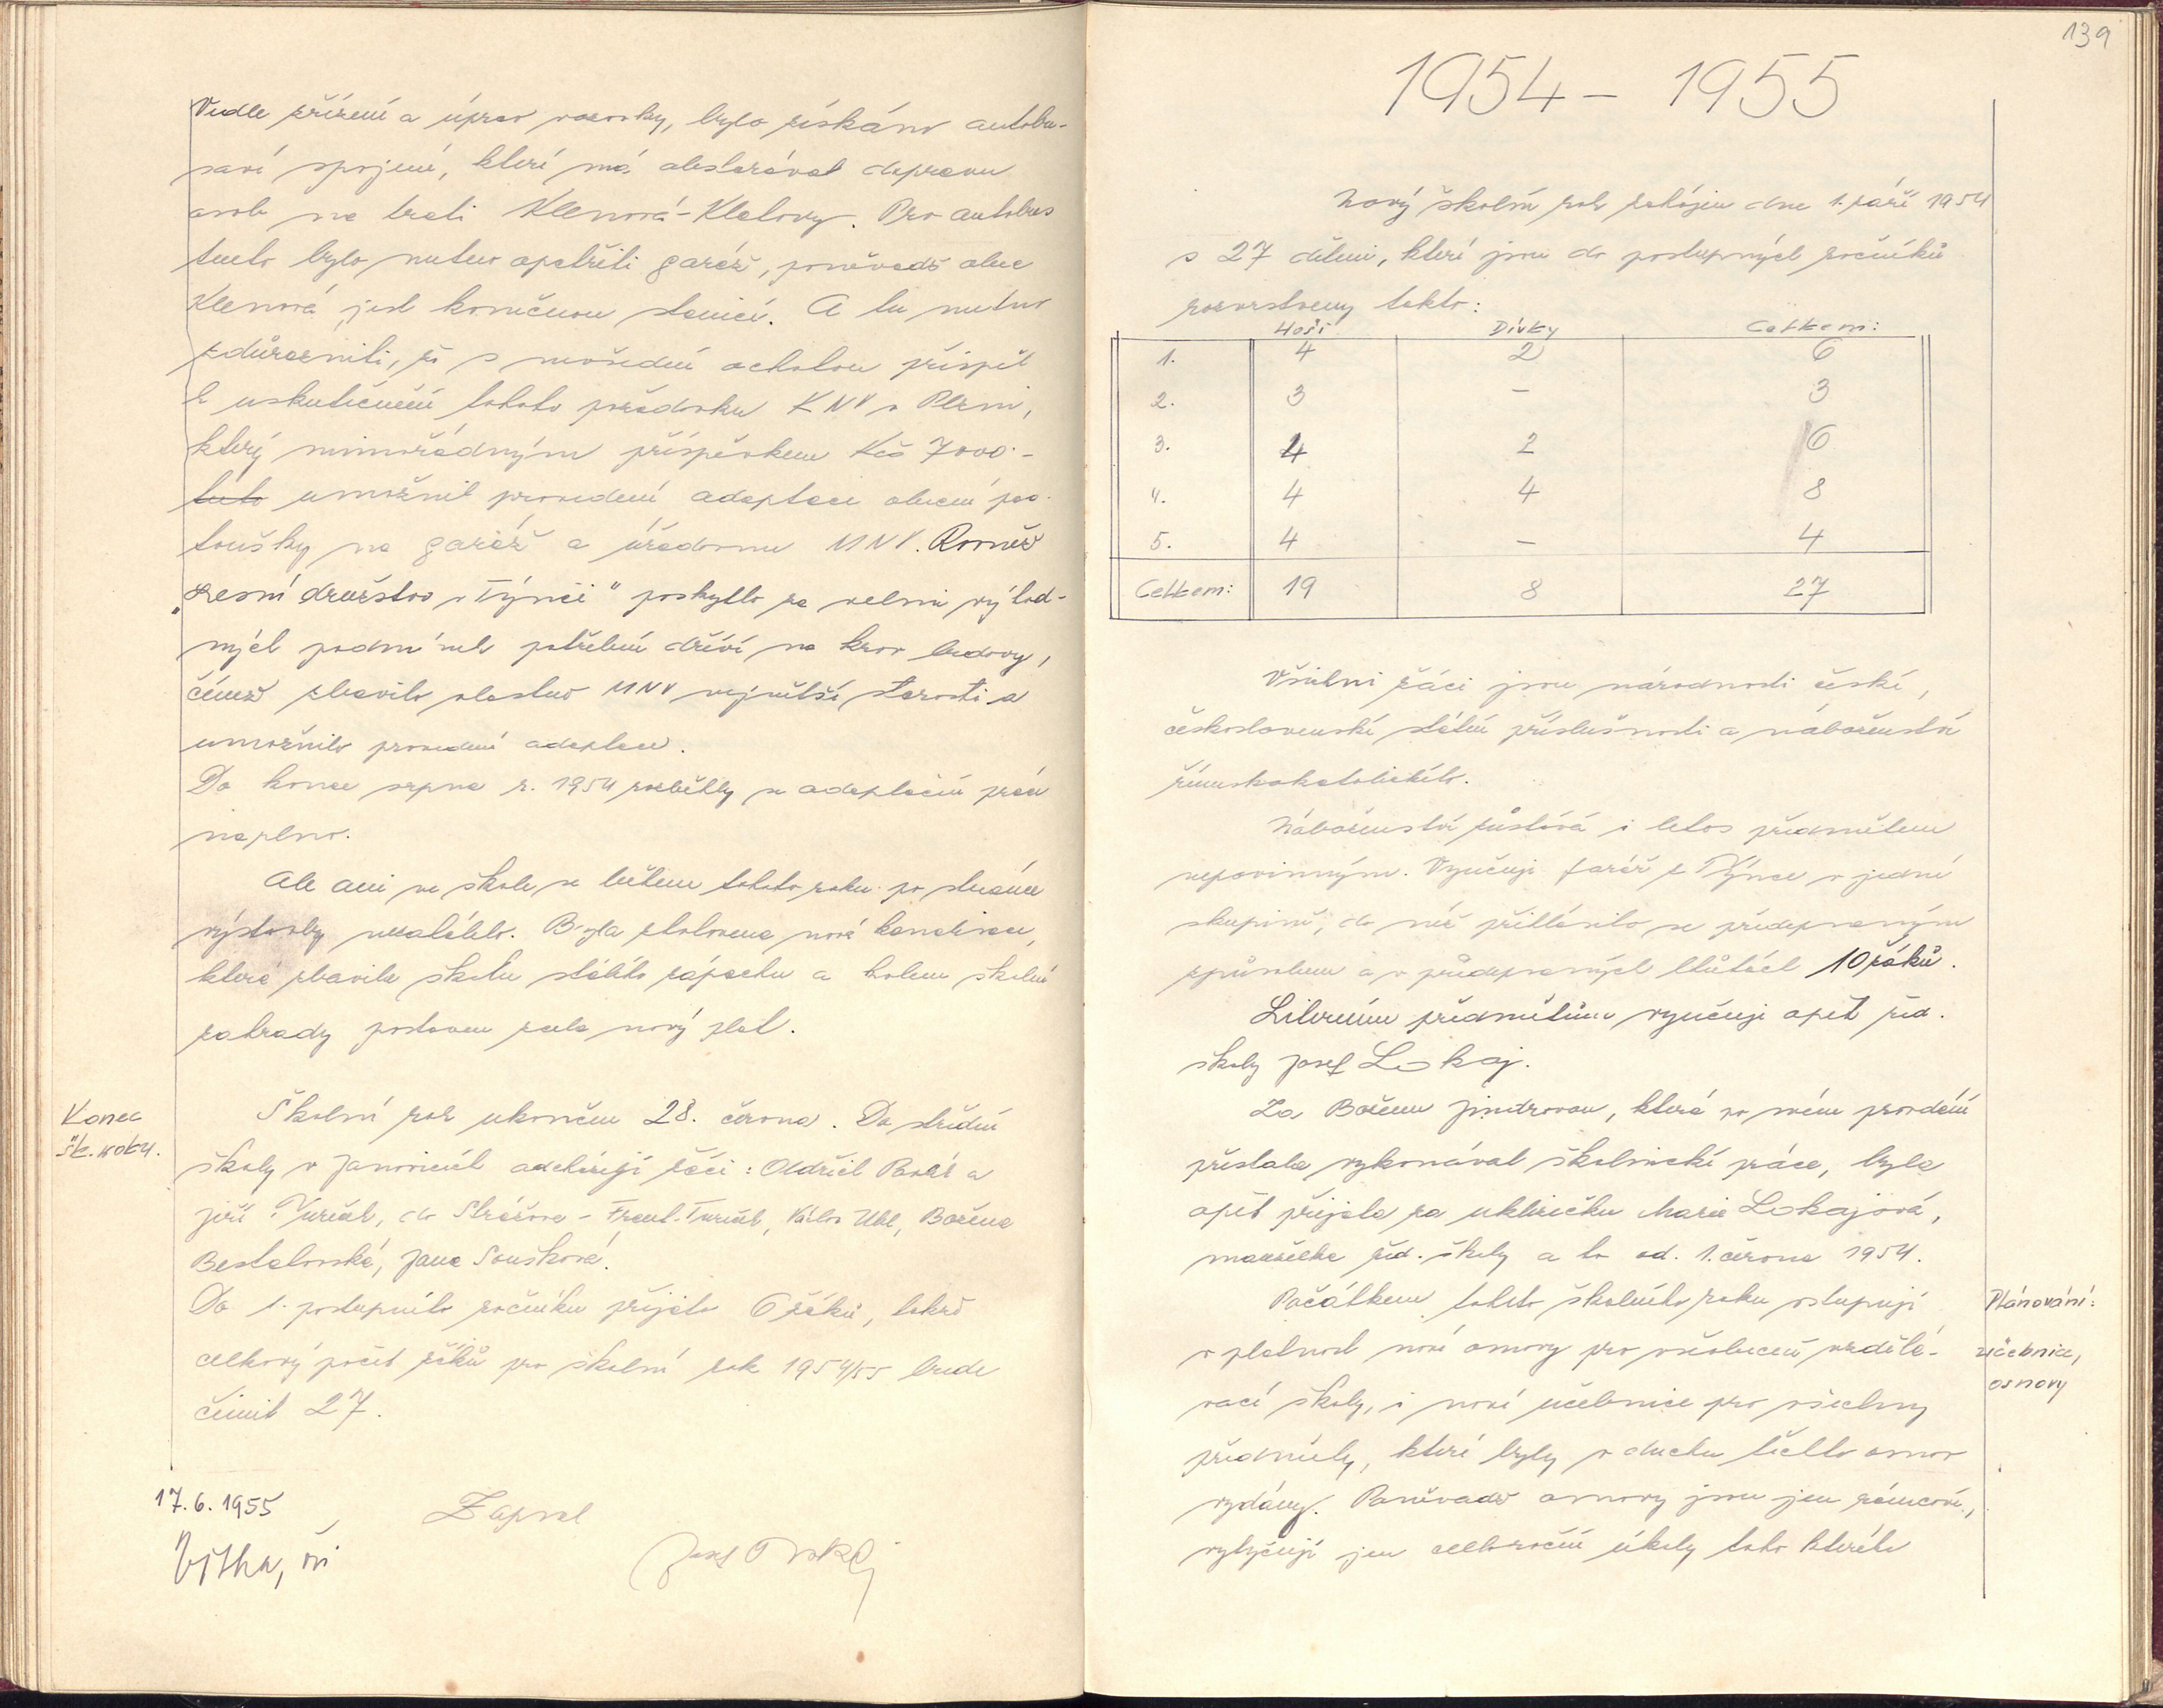 Vedle zřízení a úprav vozovky, bylo získáno autobu-
sové spojení, které má obstarávat dopravu
osob na trati Klenová-Klatovy. Pro autobus
tento bylo nutno opatřiti garáž, poněvadž obec
Klenová jest konečnou stanicí. A tu nutno
zdůrazniti, že s nevšední ochotou přispěl
k uskutečnění tohoto požadavku KNV v Plzni,
který mimořádným příspěvkem Kčs 7000.-
tuto umožnil provedení adaptace obecní pas-
toušky na garáž a úřadovnu MNV. Rovněž
"Lesní družstvo v Týnci" poskytlo za velmi výhod-
ných podmínek potřebné dříví na krov budovy,
čímž zbavilo vlastně MNV největší starosti a
umožnilo provedení adaptace.
Do konce srpna r. 1954 rozběhly se adaptační práce
naplno.
Ale ani ve škole se během tohoto roku po stránce
výstavby nezahálelo. Byla zhotovena nová kanalisace,
která zbavila školu stálého zápachu a kolem školní
zahrady postaven zcela nový plot.
Konec
šk. roku.
Školní rok ukončen 28. června. Do střední
školy v Janovicích odcházejí žáci: Oldřich a
Jiří Turek, do Strážova - Frant. Turek, Václav Uhl, Božena
Bestalovská, Jana Soušková.
Do 1. postupného ročníku přijato 6 žáků, takže
celkový počet žáků pro školní rok 1954/55 bude
činit 27.
17.6.1955
Zapsal
Josef Lokaj
139
1954 - 1955
Nový školní rok zahájen dne 1. září 1954
s 27 dětmi, které jsou do postupných ročníků
rozvrstveny takto:
Hoši Dívky Celkem:
1. 4 2 6
2. 3 - 3
3. 4 2 6
4. 4 4 8
5. 4 - 4
Celkem: 19 8 27
Všichni žáci jsou národnosti české,
československé státní příslušnosti a náboženství
římskokatolického.
Náboženství zůstává i letos předmětem
nepovinným. Vyučuje farář z Týnce v jedné
skupině, do níž přihlásilo se předepsaným
způsobem a v předepsaných lhůtách 10 žáků.
Literním předmětům vyučuje opět řed.
školy Josef Lokaj.
Za Boženu Jindrovou, která po svém provdání
přestala vykonávat školnické práce, byla
opět přijata za uklizečku Marie Lokajová,
manželka řed. školy a to od 1. června 1954.
Počátkem tohoto školního roku vstupují
v platnost nové osnovy pro všeobecně vzdělá-
vací školy, i nové učebnice pro všechny
předměty, které byly v duchu těchto osnov
vydány. Poněvadž osnovy jsou jen rámcové,
vytyčují jen celoroční úkoly toho kterého
Plánování:
učebnice,
osnovy